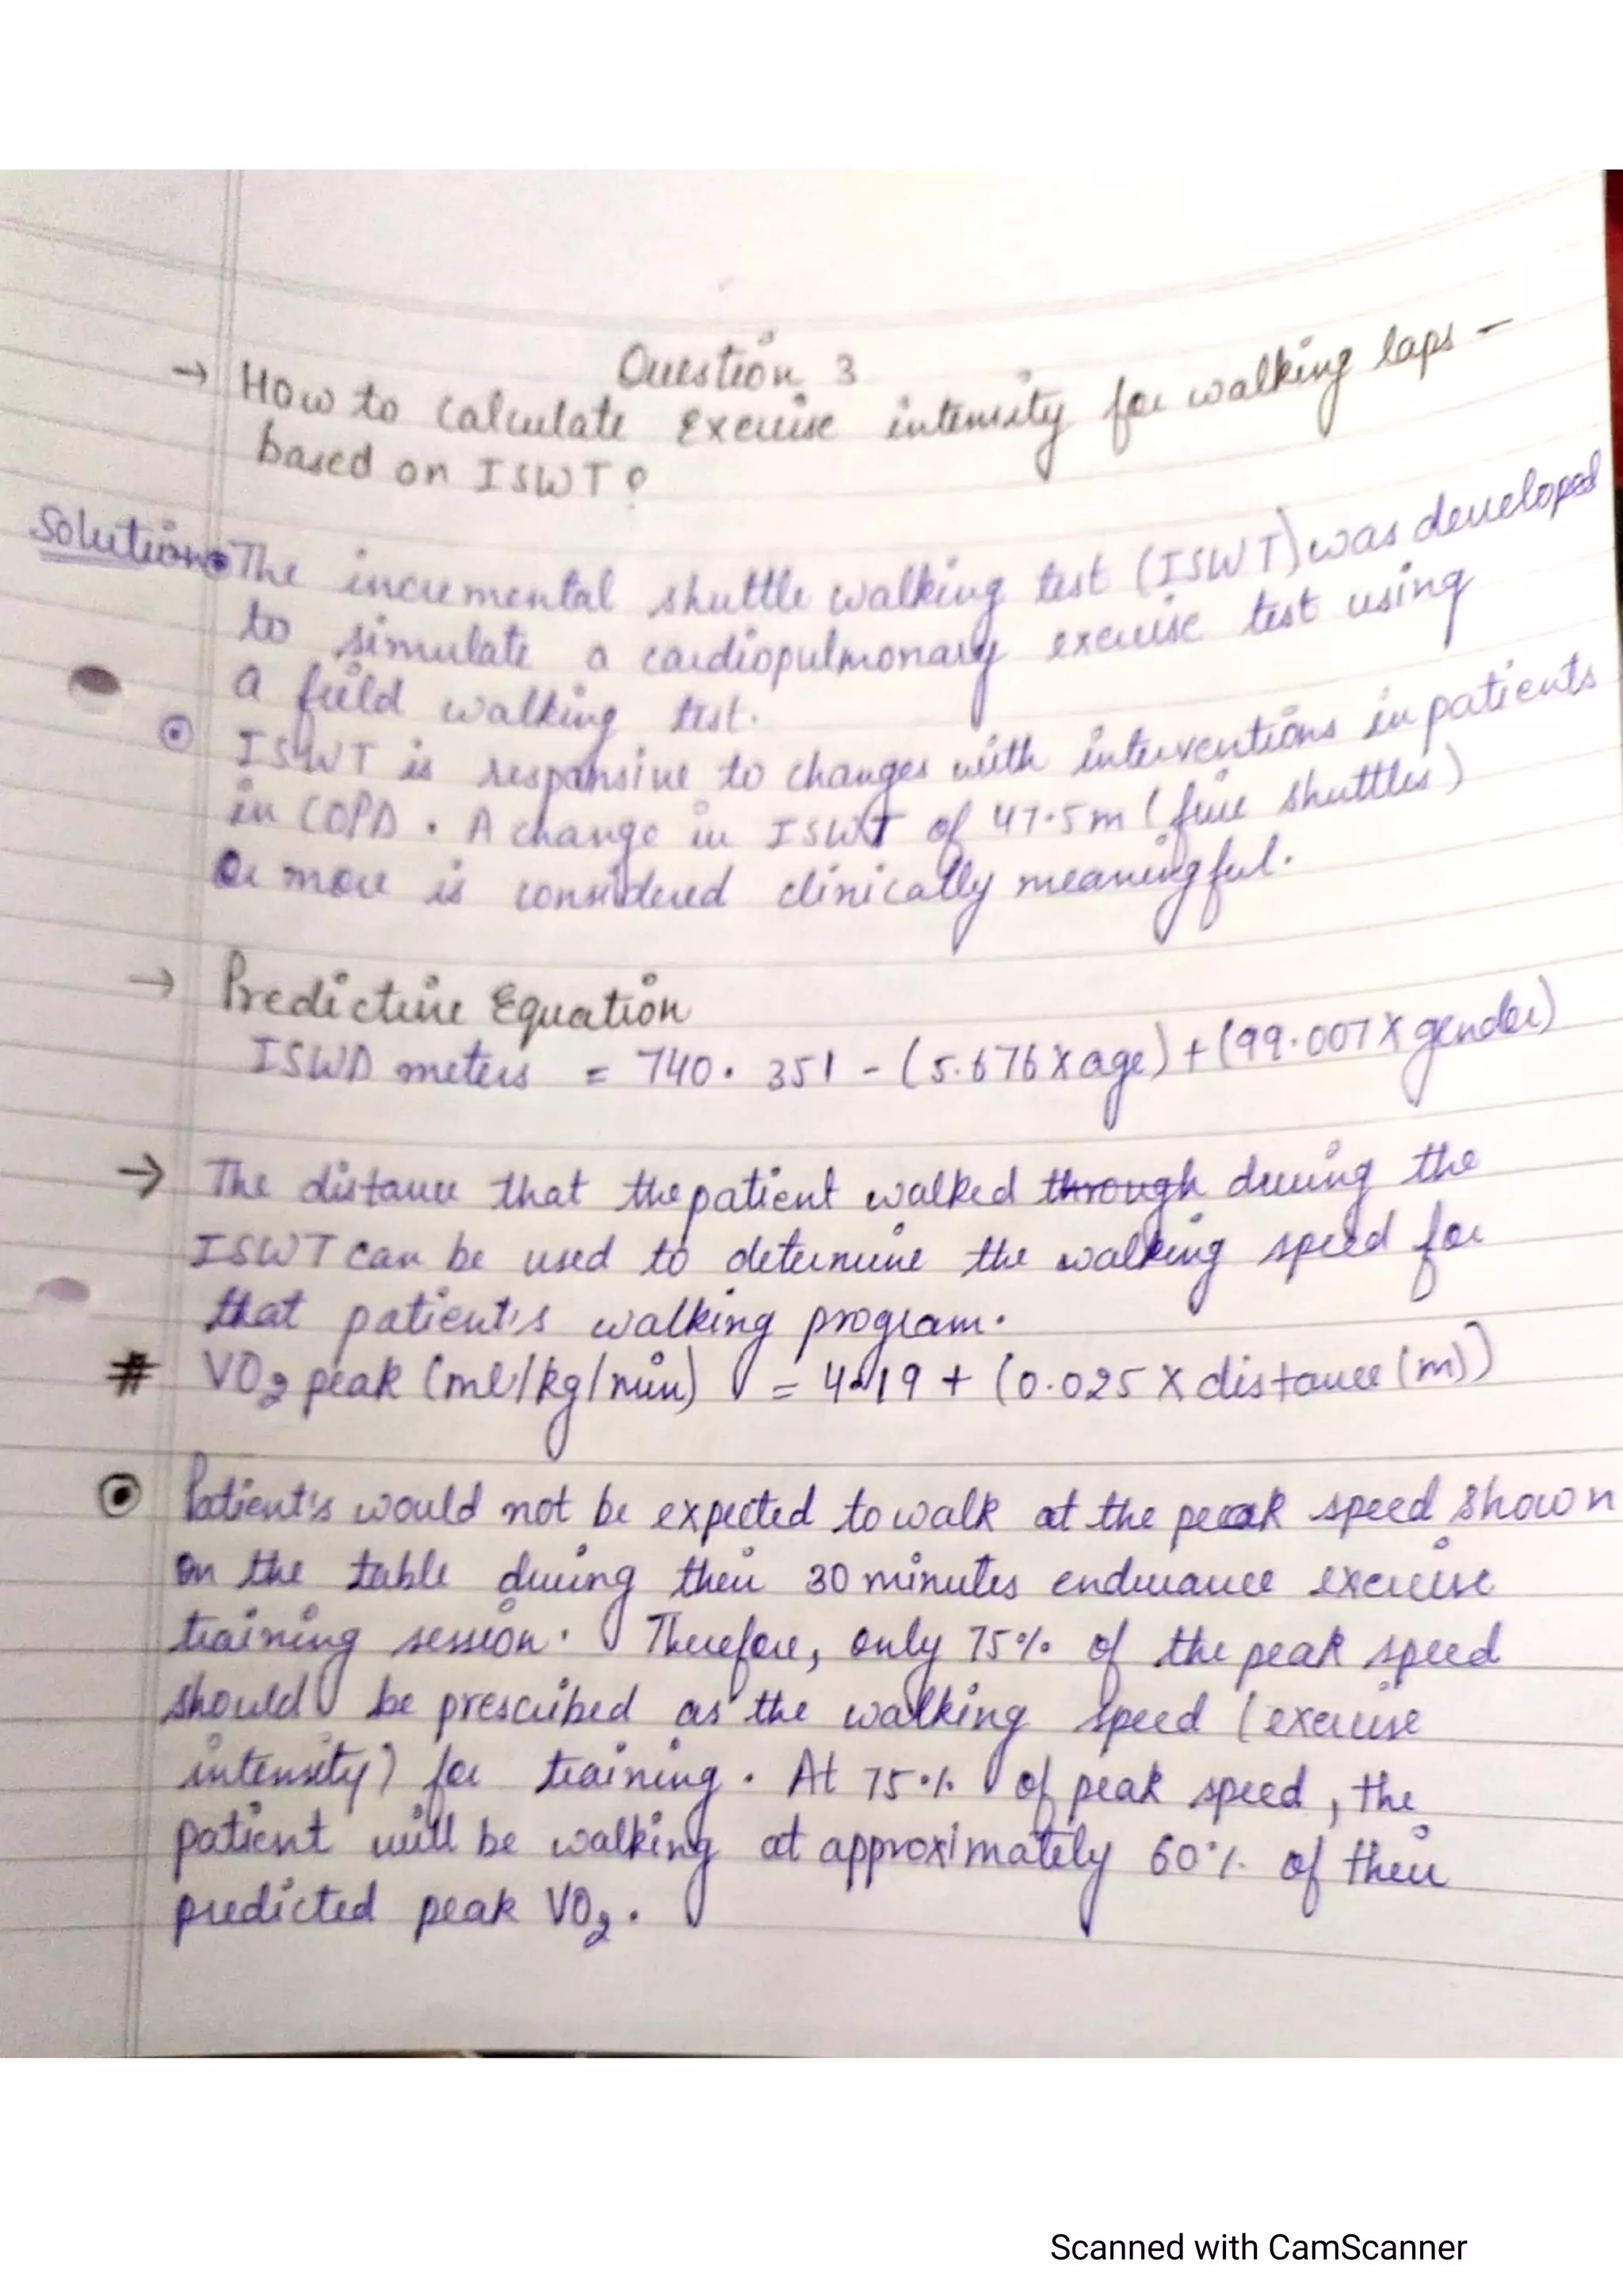 Question 3
→ How to calculate Exercise intensity for walking laps -
based on ISWT?
Solution The incremental shuttle walking test (ISWT) was developed
to simulate a cardiopulmonary exercise test using
a field walking test.
ISWT is responsive to changes with interventions in patients
in COPD. A change in ISWT of 47.5m (five shuttles)
or more is considered clinically meaningful.
→ Predictive Equation
ISWD meters = 740.351 - (5.676 X age) + (99.007 X gender)
→ The distance that the patient walked through during the
ISWT can be used to determine the walking speed for
that patient's walking program.
# VO2 peak (ml/kg/min) = 4.19 + (0.025 X distance (m))
Patient's would not be expected to walk at the peak speed shown
on the table during their 30 minutes endurance exercise
training session. Therefore, only 75% of the peak speed
should be prescribed as the walking speed (exercise
intensity) for training. At 75% of peak speed, the
patient will be walking at approximately 60% of their
predicted peak VO2.
Scanned with CamScanner